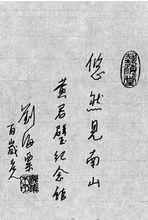 悠然見南山
黄君璧纪念馆
劉海粟
百歲老人